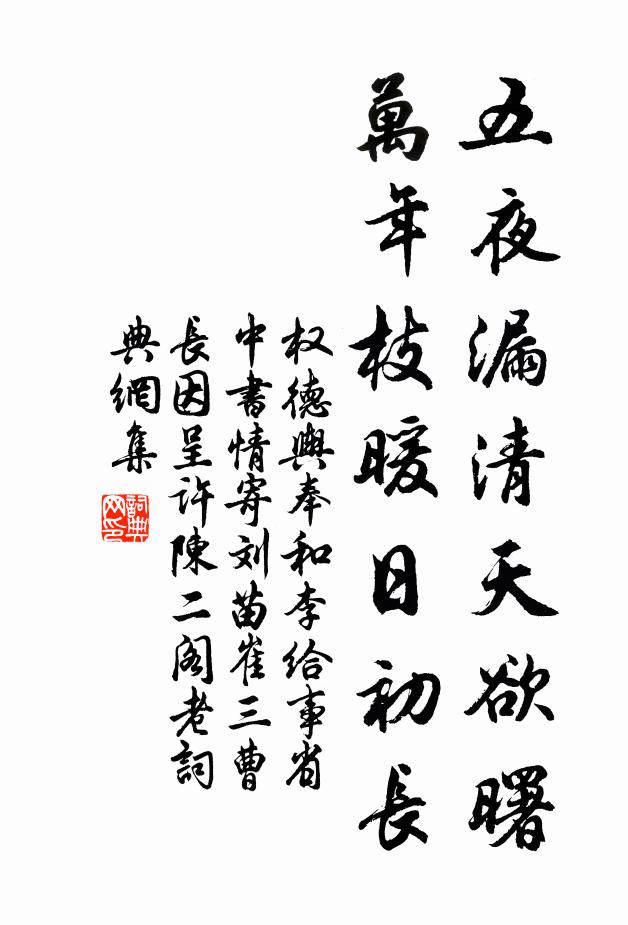 五夜漏清天欲曙
萬年枝暖日初長
权德輿奉和李给事省
中書情寄刘苗崔三曹
長因呈许陳二阁老詞
典網集
詞典
网印